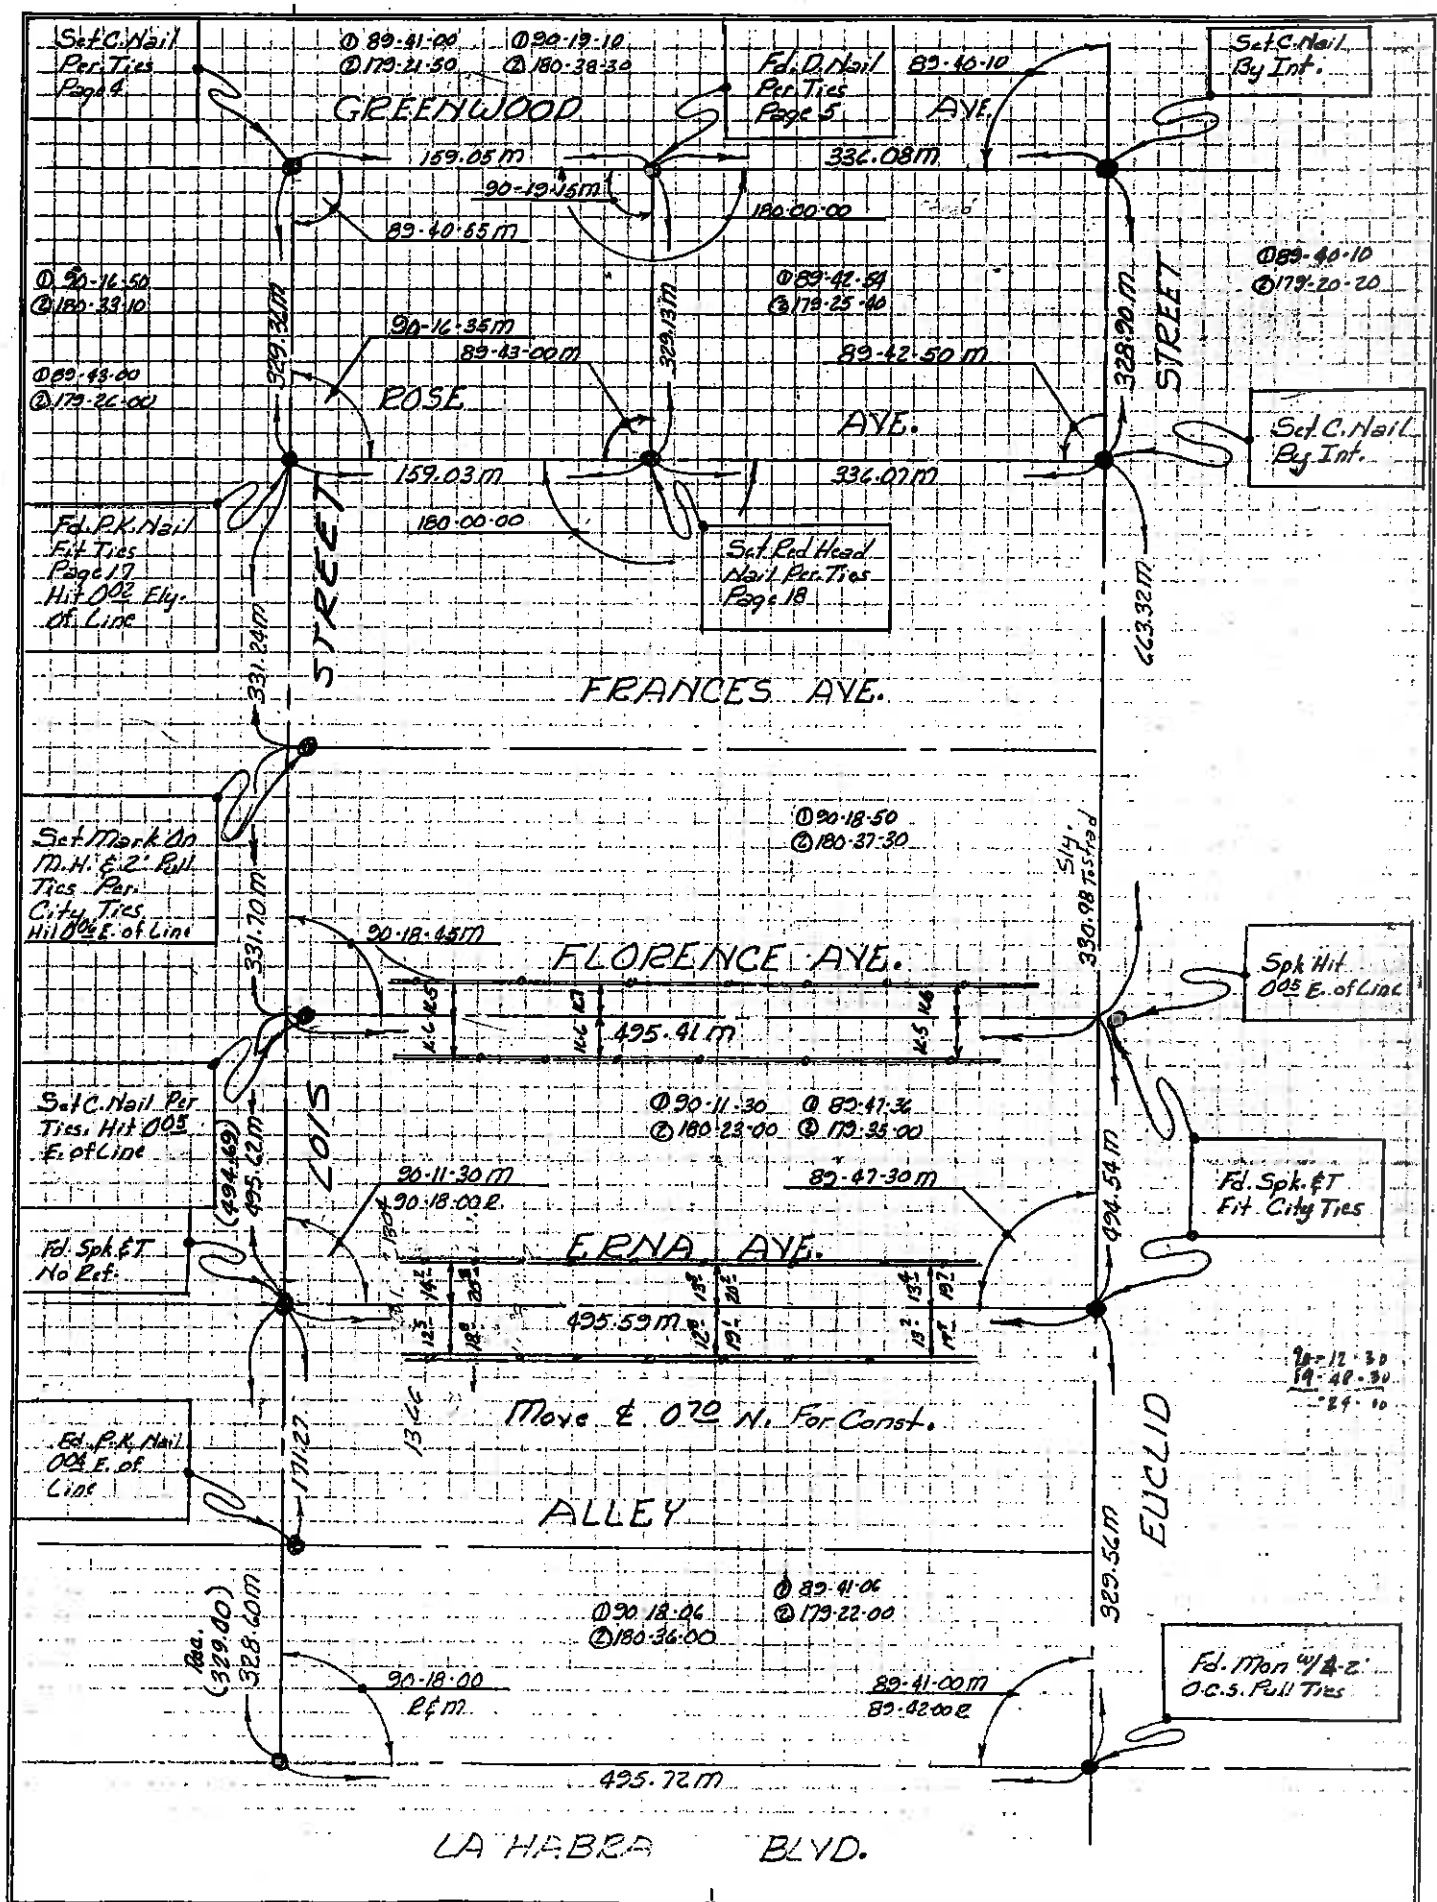 Set C. Nail
Per. Ties
Page 4
① 89-41-00
② 179-21-50
① 90-19-10
② 180-38-30
Fd. D. Nail
Per Ties
Page 5
89-40-10
Set C. Nail
By Int.
GREENWOOD AVE.
159.05 m
336.08 m
90-19-15 m
180-00-00
89-40-55 m
① 90-16-50
② 180-33-10
① 89-42-54
② 179-25-40
① 89-40-10
② 179-20-20
329.36 m
329.13 m
328.90 m
STREET
90-16-35 m
89-43-00 m
89-42-50 m
① 89-43-00
② 179-26-00
ROSE AVE.
Set C. Nail
By Int.
159.03 m
336.07 m
180-00-00
Fd. P.K. Nail
Fit Ties
Page 17
Hit 0.02 Ely.
of Line
Set Red Head
Nail Per. Ties
Page 18
STREET
331.24 m
663.32 m
FRANCES AVE.
Set Mark On
M.H. & 2' Pull
Ties Per.
City Ties
Hit 0.06 E. of Line
① 90-18-50
② 180-37-30
Sly.
330.98 To
331.70 m
90-18-45 m
FLORENCE AVE.
Spk Hit
0.05 E. of Line
16.5
16.7
16.6
16.6
16.6
16.5
495.41 m
Set C. Nail Per
Ties. Hit 0.05
E. of Line
① 90-11-30
② 180-23-00
① 89-47-36
② 179-35-00
(494.69)
495.62 m
LOIS
494.54 m
90-11-30 m
90-18-00 R
89-47-30 m
Fd. Spk. & T
Fit City Ties
Fd. Spk & T
No Ref.
ERNA AVE.
495.59 m
90-12-30
Move ℄ 0.70 N. For Const.
13.66
Fd. P.K. Nail
0.04 E. of
Line
171.27
EUCLID
ALLEY
329.56 m
① 90-18-06
② 180-36-00
① 89-41-06
② 179-22-00
Rec.
(329.00)
328.60 m
90-18-00
R & m
89-41-00 m
89-42-00 R
Fd. Mon w/ 4-2'
O.C.S. Pull Ties
495.72 m
LA HABRA BLVD.